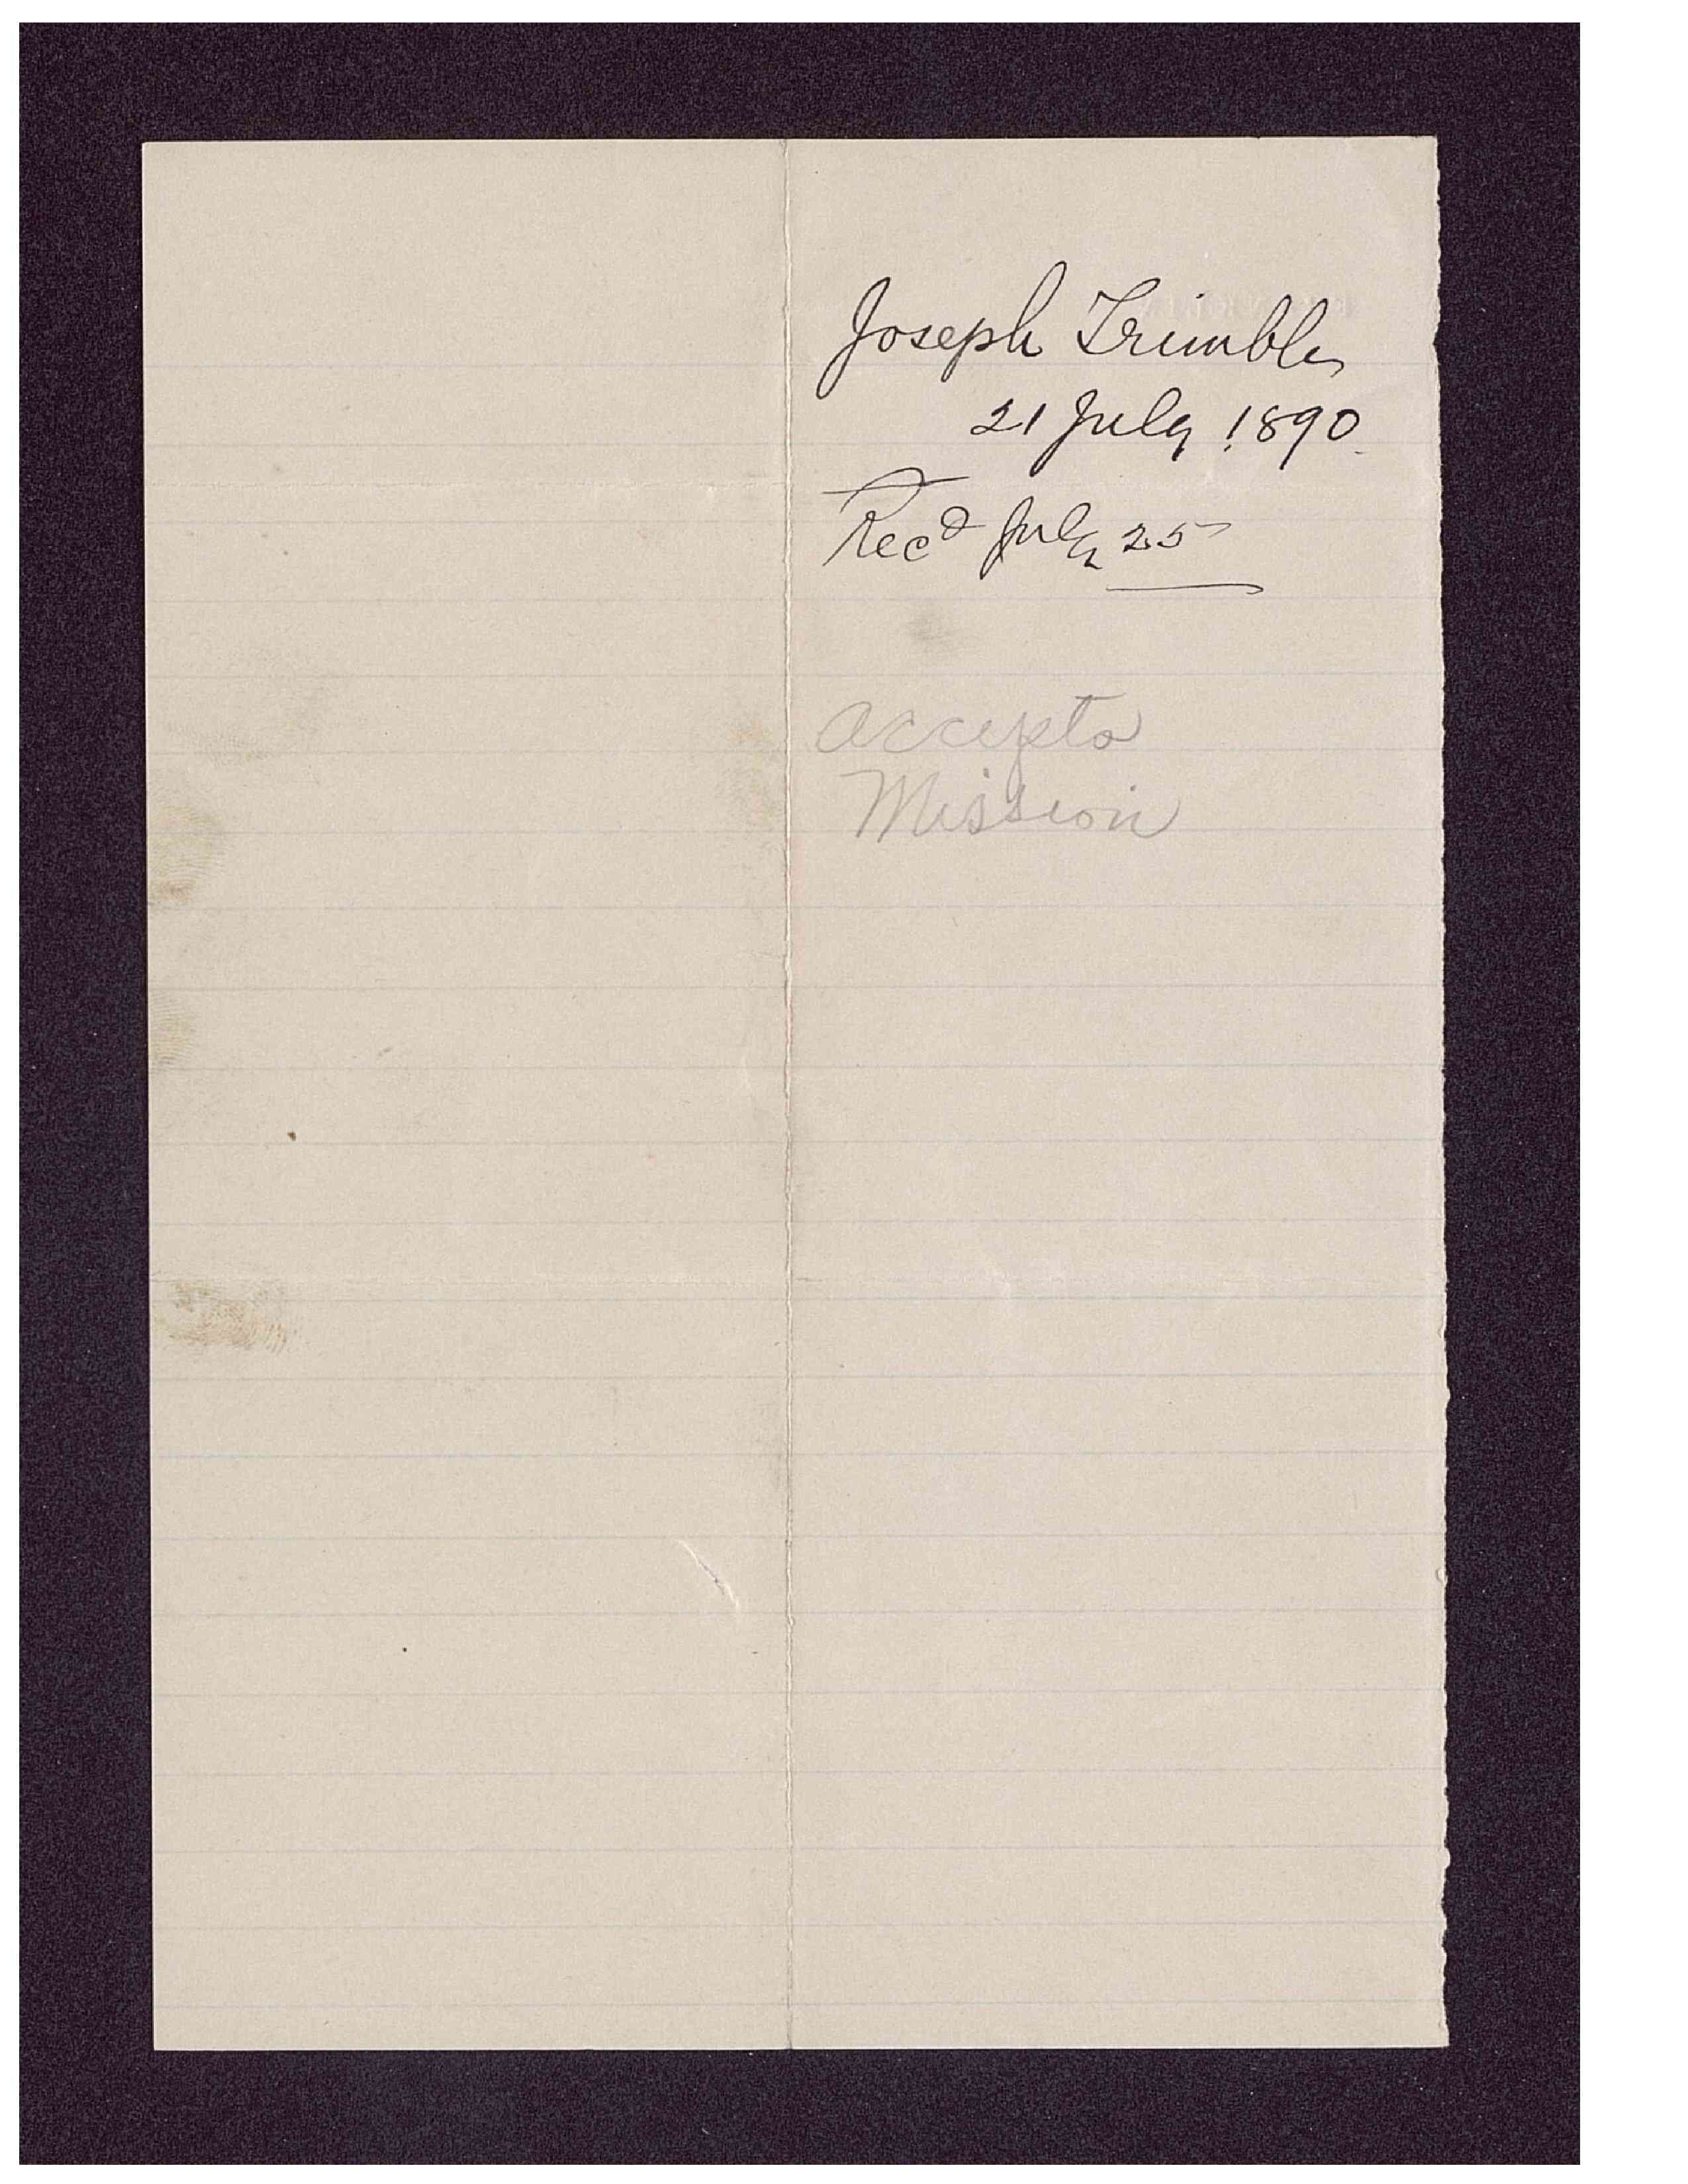 Joseph Trimble
21 July 1890.
Recd July 25
accepts
Mission